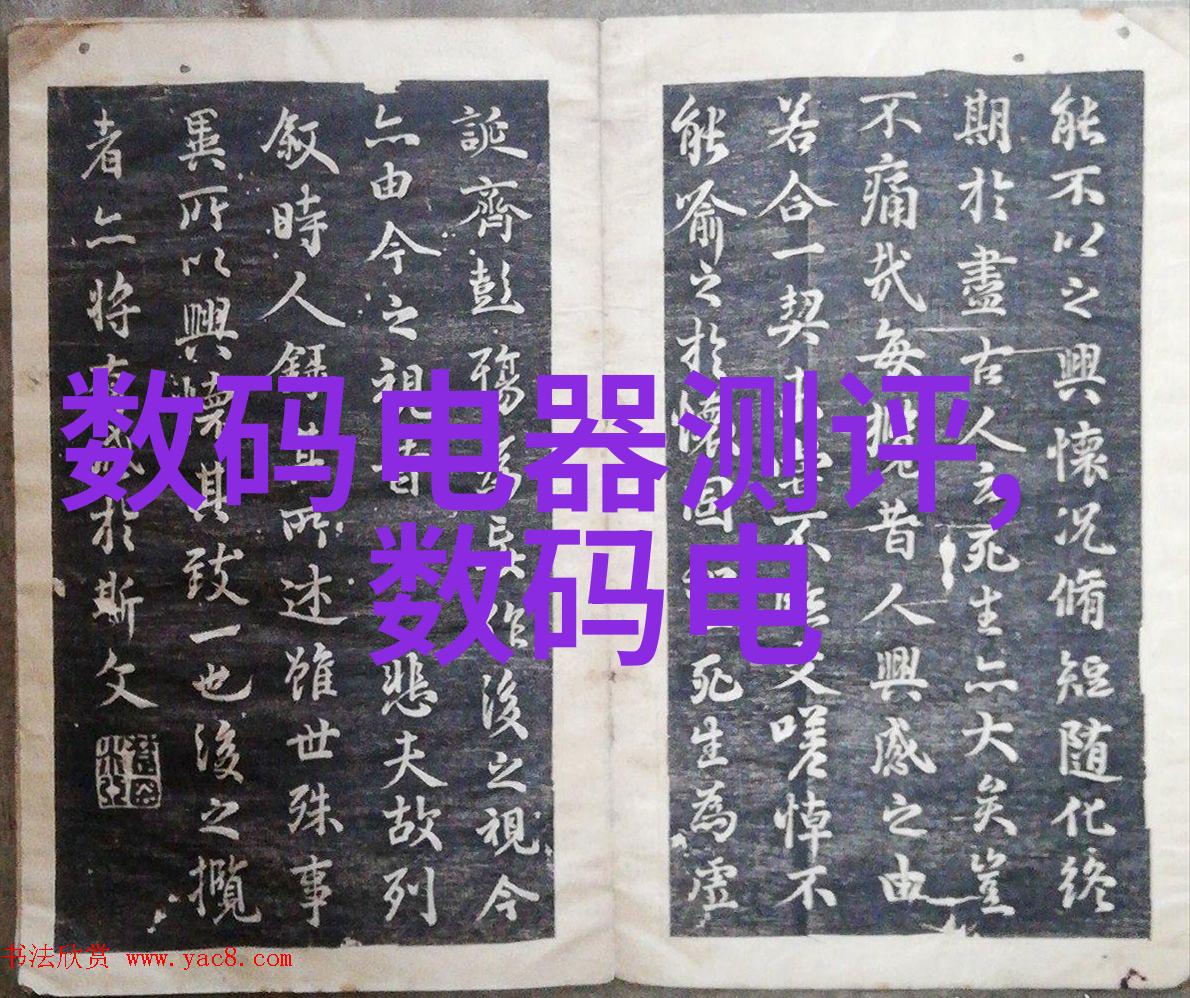 数码电器测评,
数码电
能不以之興懷況脩短随化終
期於盡古人云死生亦大矣豈
不痛哉每攬昔人興感之由
若合一契不文嗟悼不
能喻之於懷固死生為虛
誕齊彭殤作後之視今
亦由今之視昔悲夫故列
敘時人録其所述雖世殊事
異所以興懷其致一也後之攬
者亦将有感於斯文
书法欣赏 www.yac8.com